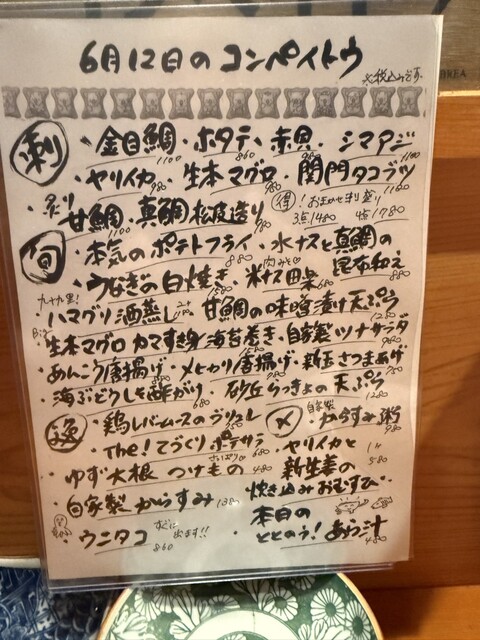 6月12日のコンペイトウ
※税込みです。
刺 ・金目鯛 1100 ・ホタテ 860 ・赤貝 980 ・シマアジ 1100
・ヤリイカ 980 ・生本マグロ 980 ・関門タコブツ 1100
・炙り甘鯛 1100 ・真鯛松皮造り 980 得！おまかせ刺し盛り 3点1480 4点1780
旬 ・本気のポテトフライ 880 ・水ナスと真鯛の昆布和え 880
・うなぎの白焼き ・米ナス田楽 肉みそ 680
九十九里！
・ハマグリ酒蒸し ・甘鯛の味噌漬け天ぷら 1280
・生本マグロカマすき身海苔巻き ・自家製ツナサラダ 980
・あんこう唐揚げ ・メヒカリ唐揚げ ・新玉さつまあげ
・海ぶどうしを酢がり ・砂丘らっきょの天ぷら 1280
・鶏レバームースのブリュレ
・The！てづくりポテサラ 680
・ゆず大根つけもの 480
・自家製からすみ 1380
・ウニタコ 860 などに出ます!!
〆 ・自家製からすみ粥 980
・ヤリイカと新生姜の炊き込みおむすび 1ヶ 580
・本日のととのう！あら汁 480
KOREA